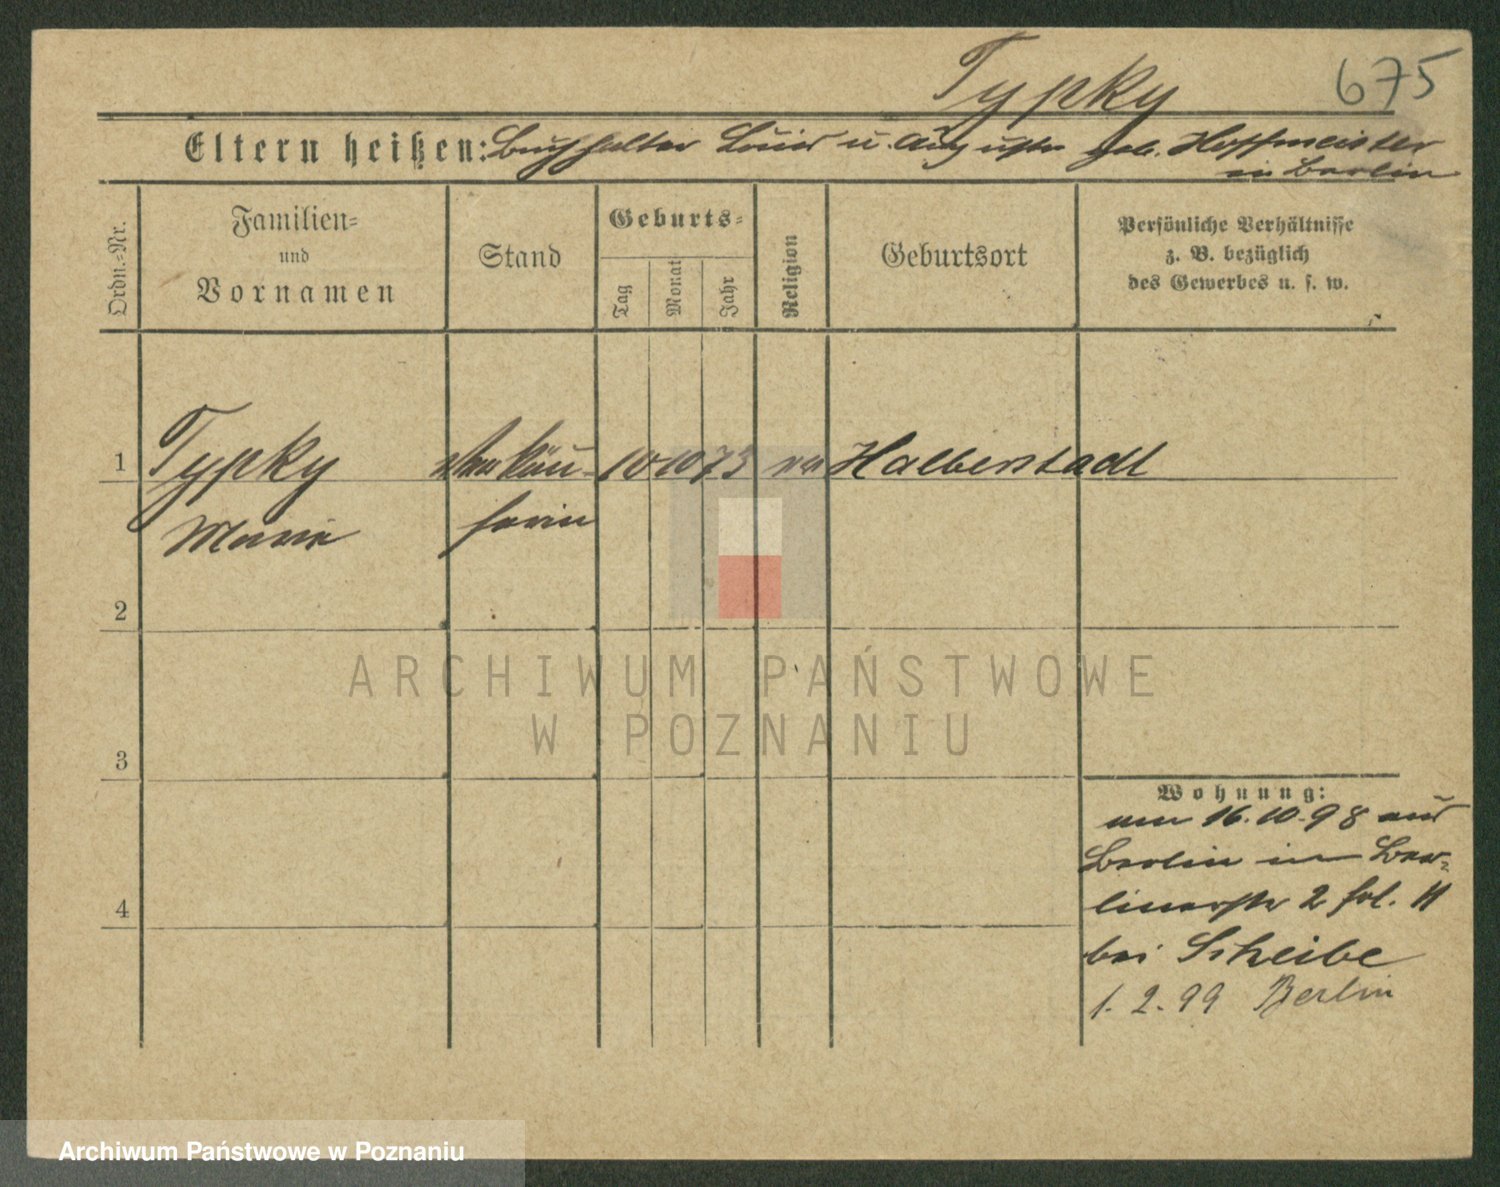 Typky 675
Eltern heißen: Buchhalter Louis u. Auguste geb. Hoffmeister
in Berlin
Ordn.=Nr.
Familien=
und
Vornamen
Stand
Geburts=
Tag
Monat
Jahr
Religion
Geburtsort
Persönliche Verhältnisse
z. B. bezüglich
des Gewerbes u. s. w.
1 Typky Verkäu- 10 10 73 ev Halberstadt
Marie ferin
2
3
4
Wohnung:
am 16.10.98 aus
Berlin in Ber-
linerstr 2 II
bei Scheibe
1.2.99 Berlin
ARCHIWUM PAŃSTWOWE
W POZNANIU
Archiwum Państwowe w Poznaniu